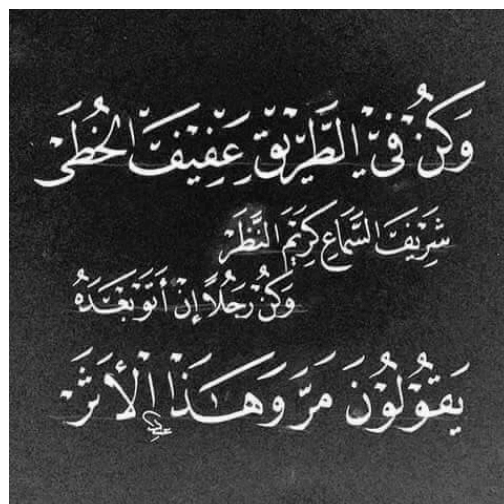 وَكُنْ فِي الطَّرِيْقِ عَفِيْفَ الخُطَى
شَرِيْفَ السَّمَاعِ كَرِيْمَ النَّظَرْ
وَكُنْ رَجُلاً إِنْ أَتَوْ بَعْدَهُ
يَقُوْلُوْنَ مَرَّ وَهَذَا الأَثَرْ